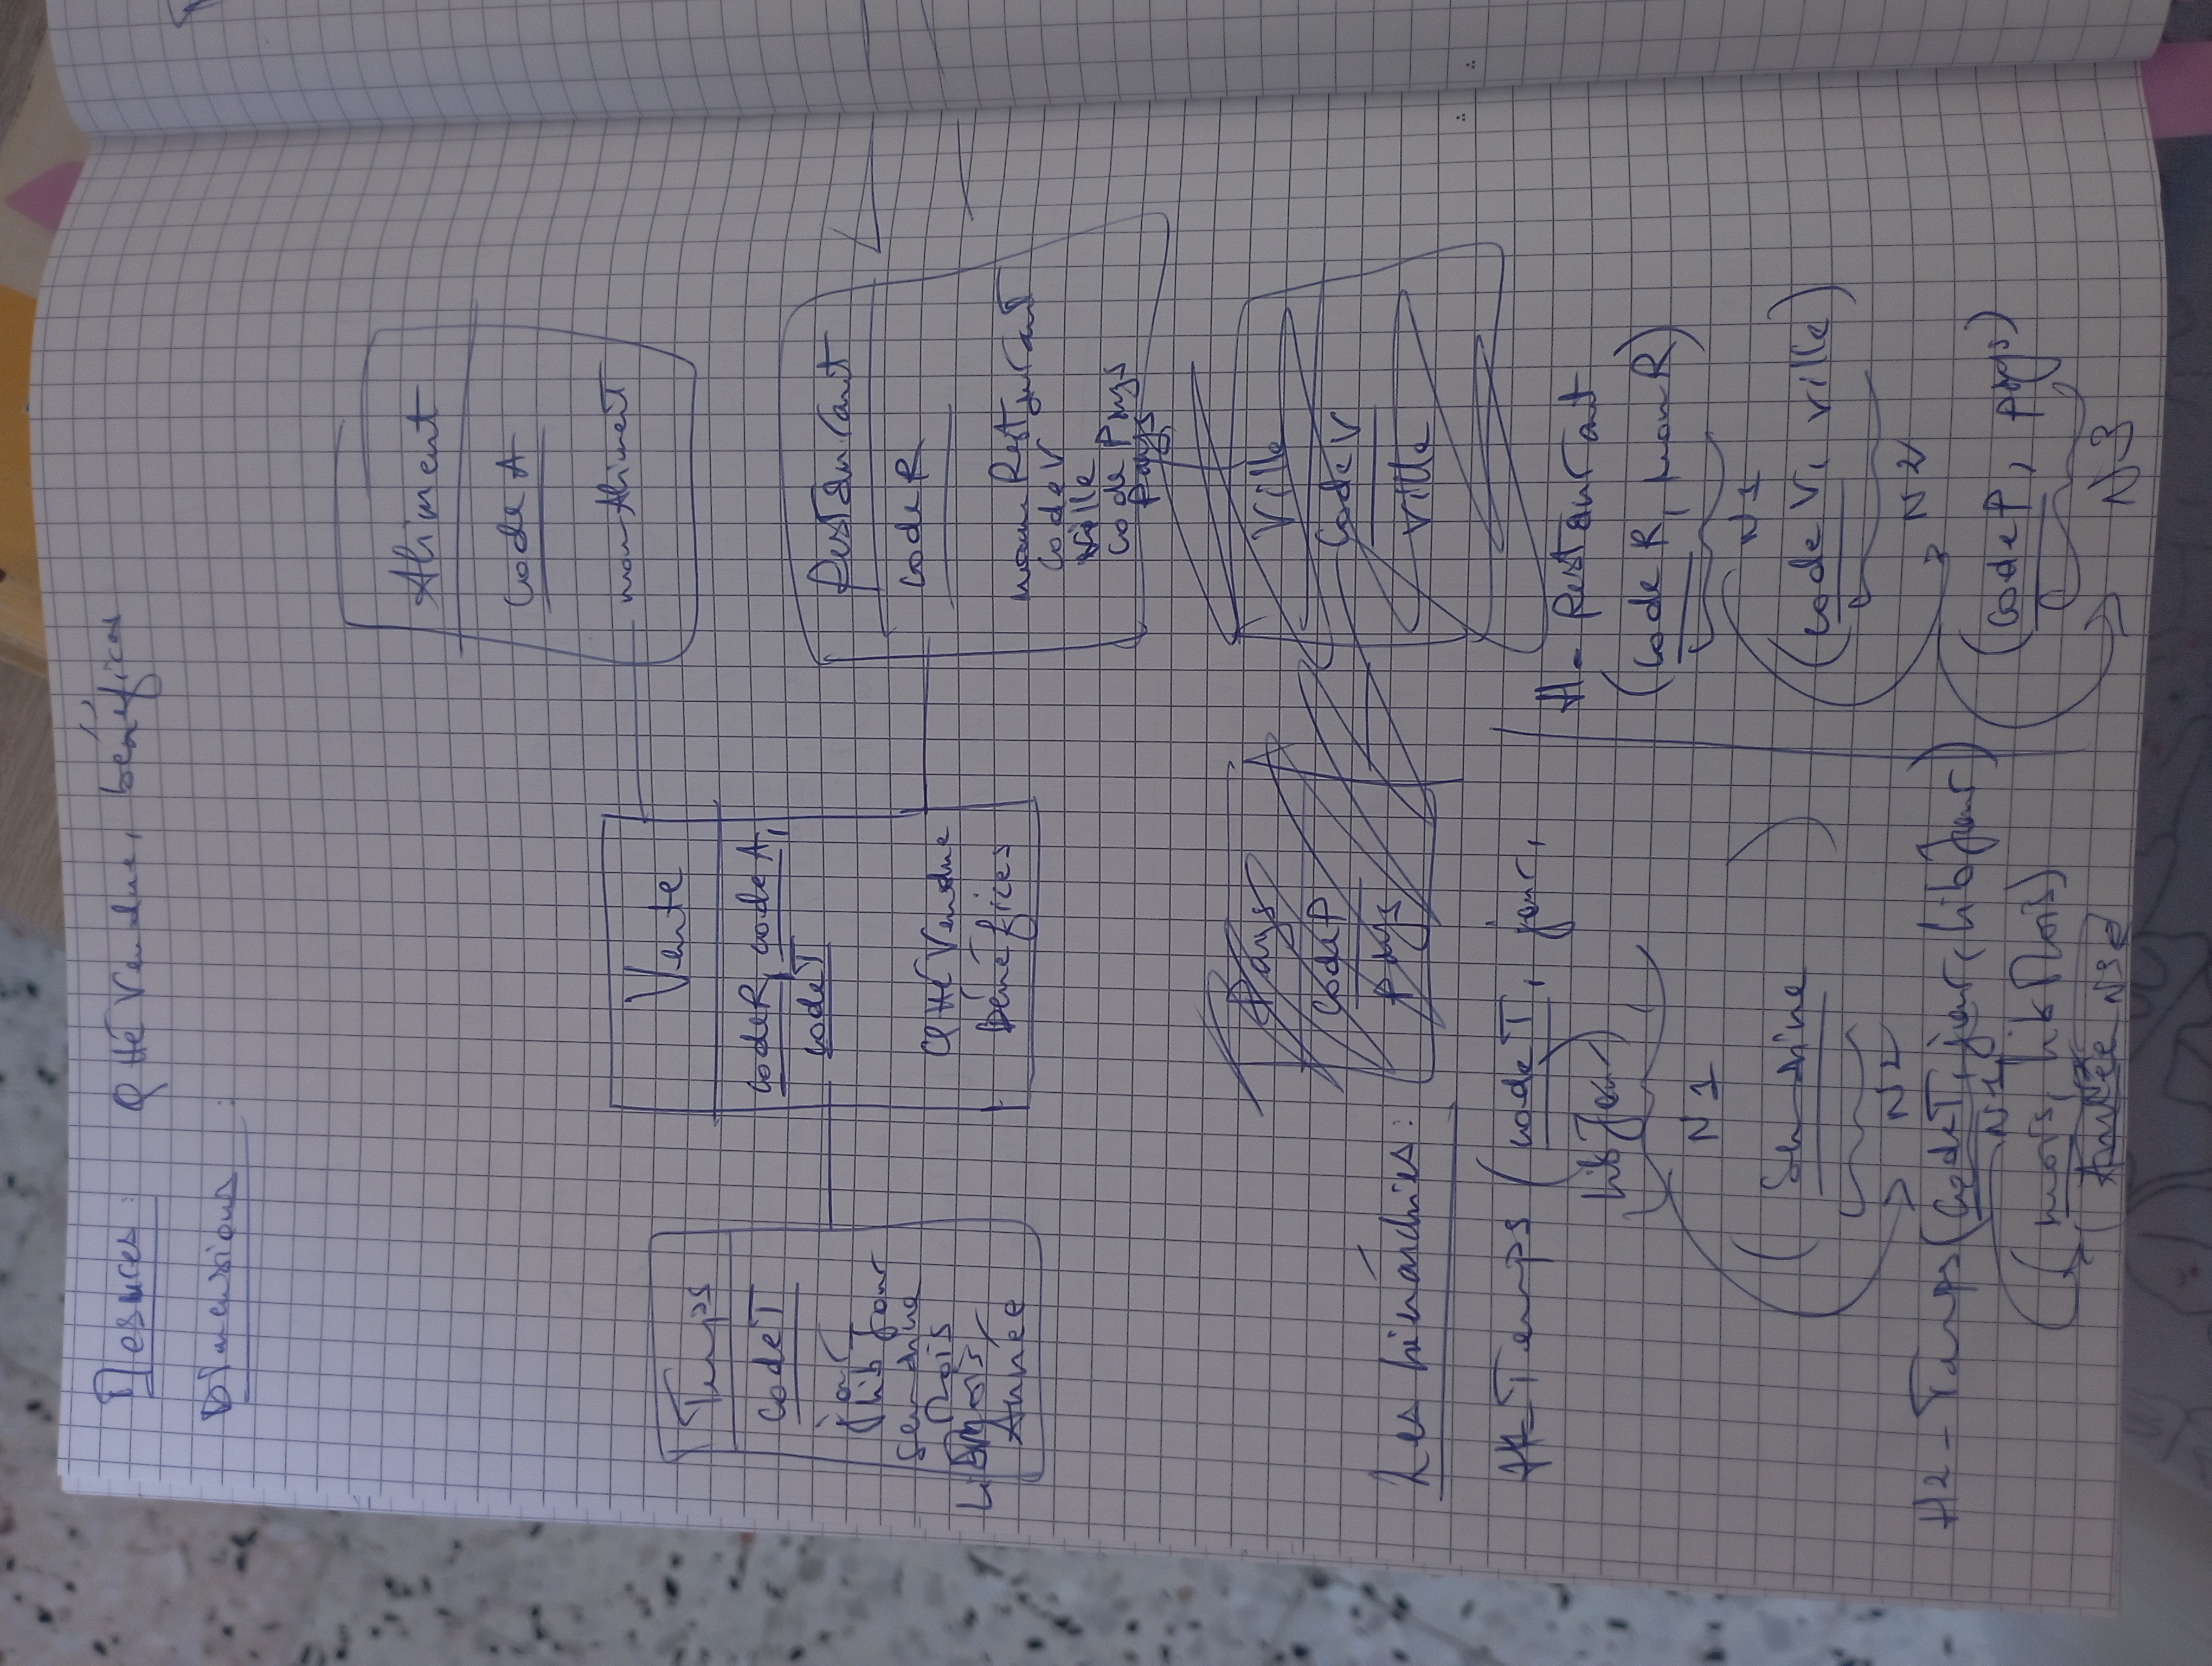 Mesures : Qté Vendue, bénéfices
Dimensions :
Aliment
Code A
nom Aliment
Temps
CodeT
jour
lib Jour
Semaine
Mois
Lib Mois
Année
Vente
CodeR, CodeA,
CodeT
Qté Vendue
bénéfices
Restaurant
Code R
nom Restaurant
Code V
Ville
Code Pays
Pays
Pays
CodeP
Pays
Ville
CodeV
Ville
Les hiérarchies :
H- Temps (CodeT, jour,
lib Jour)
N1
( Semaine )
N2
H2 - Temps (CodeT, jour, lib Jour)
N1
(mois, lib Mois)
N2
(Année N3)
H- Restaurant
(Code R, nom R)
N1
(Code V, ville)
N2
(Code P, pays)
N3